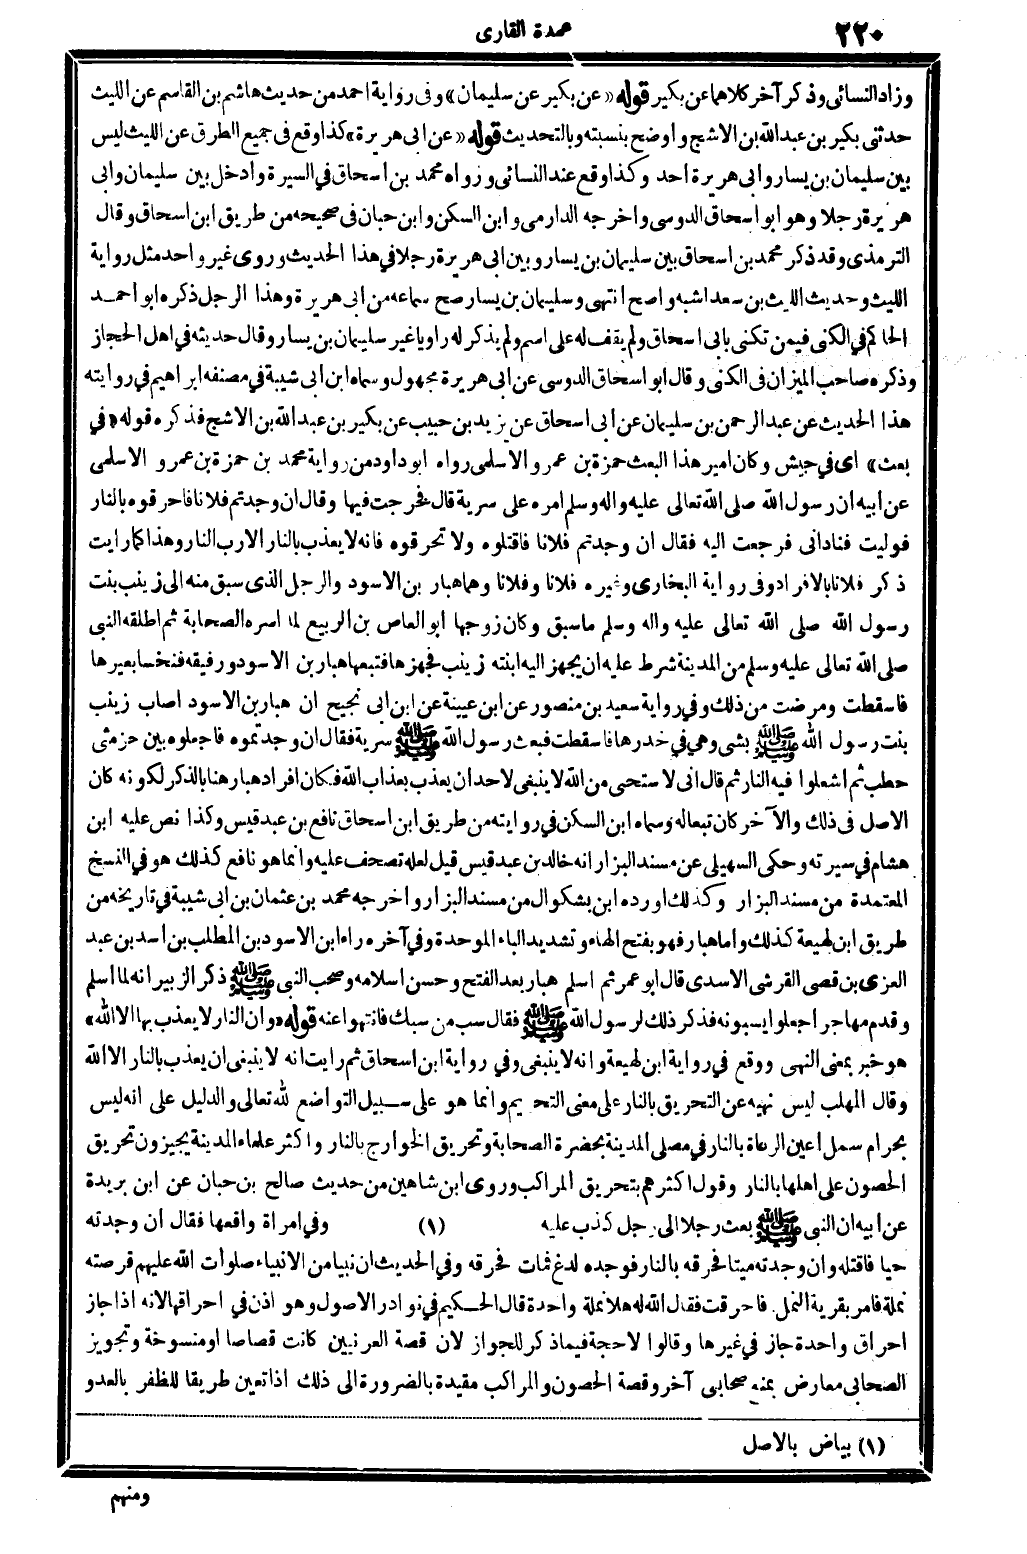 ٢٢٠
عمدة القارى
وزاد النسائى وذكر آخر كلاهما عن بكير قوله «عن بكير عن سليمان» وفى رواية احمد من حديث هاشم بن القاسم عن الليث
حدثنى بكير بن عبد الله بن الاشج واوضح بنسبته وبالتحديث قوله «عن ابى هريرة» كذا وقع فى جميع الطرق عن الليث ليس
بين سليمان بن يسار وابى هريرة احد وكذا وقع عند النسائى ورواه محمد بن اسحاق فى السيرة وادخل بين سليمان وابى
هريرة رجلا وهو ابو اسحاق الدوسى واخرجه الدارمى وابن السكن وابن حبان فى صحيحه من طريق ابن اسحاق وقال
الترمذى وقد ذكر محمد بن اسحاق بين سليمان بن يسار وبين ابى هريرة رجلا فى هذا الحديث وروى غير واحد مثل رواية
الليث وحديث الليث بن سعد اشبه واصح انتهى وسليمان بن يسار صح سماعه من ابى هريرة وهذا الرجل ذكره ابو احمد
الحاكم فى الكنى فيمن تكنى بابى اسحاق ولم يقف له على اسم ولم يذكر له راويا غير سليمان بن يسار وقال حديثه فى اهل الحجاز
وذكره صاحب الميزان فى الكنى وقال ابو اسحاق الدوسى عن ابى هريرة مجهول وسماه ابن ابى شيبة فى مصنفه ابراهيم فى روايته
هذا الحديث عن عبد الرحمن بن سليمان عن ابى اسحاق عن يزيد بن حبيب عن بكير بن عبد الله بن الاشج فذكره قوله «فى
بعث» اى فى جيش وكان امير هذا البعث حمزة بن عمرو الاسلمى رواه ابو داود من رواية محمد بن حمزة بن عمرو الاسلمى
عن ابيه ان رسول الله صلى الله تعالى عليه واله وسلم امره على سرية قال فخرجت فيها وقال ان وجدتم فلانا فاحرقوه بالنار
فوليت فنادانى فرجعت اليه فقال ان وجدتم فلانا فاقتلوه ولا تحرقوه فانه لا يعذب بالنار الا رب النار وهذا كما رايت
ذكر فلانا بالافراد وفى رواية البخارى وغيره فلانا وفلانا وهما هبار بن الاسود والرجل الذى سبق منه الى زينب بنت
رسول الله صلى الله تعالى عليه واله وسلم ما سبق وكان زوجها ابو العاص بن الربيع لما اسره الصحابة ثم اطلقه النبى
صلى الله تعالى عليه وسلم من المدينة شرط عليه ان يجهز اليه ابنته زينب فجهزها فتبعها هبار بن الاسود ورفيقه فنخسا بعيرها
فاسقطت ومرضت من ذلك وفى رواية سعيد بن منصور عن ابن عيينة عن ابن ابى نجيح ان هبار بن الاسود اصاب زينب
بنت رسول الله ﷺ بشى وهى فى خدرها فاسقطت فبعث رسول الله ﷺ سرية فقال ان وجدتموه فاجعلوه بين حزمتى
حطب ثم اشعلوا فيه النار ثم قال انى لاستحى من الله لا ينبغى لاحد ان يعذب بعذاب الله فكان افراد هبار هنا بالذكر لكونه كان
الاصل فى ذلك والآخر كان تبعا له وسماه ابن السكن فى روايته من طريق ابن اسحاق نافع بن عبد قيس وكذا نص عليه ابن
هشام فى سيرته وحكى السهيلى عن مسند البزار انه خالد بن عبد قيس قيل لعله تصحف عليه وانما هو نافع كذلك هو فى النسخ
المعتمدة من مسند البزار وكذلك اورده ابن بشكوال من مسند البزار واخرجه محمد بن عثمان بن ابى شيبة فى تاريخه من
طريق ابن لهيعة كذلك واما هبار فهو بفتح الهاء وتشديد الباء الموحدة وفى آخره راء ابن الاسود بن المطلب بن اسد بن عبد
العزى بن قصى القرشى الاسدى قال ابو عمر ثم اسلم هبار بعد الفتح وحسن اسلامه وصحب النبى ﷺ ذكر الزبير انه لما اسلم
وقدم مهاجرا جعلوا يسبونه فذكر ذلك لرسول الله ﷺ فقال سب من سبك فانتهوا عنه قوله «وان النار لا يعذب بها الا الله»
هو خبر بمعنى النهى ووقع فى رواية ابن لهيعة وانه لا ينبغى وفى رواية ابن اسحاق ثم رايت انه لا ينبغى ان يعذب بالنار الا الله
وقال المهلب ليس نهيه عن التحريق بالنار على معنى التحريم وانما هو على سبيل التواضع لله تعالى والدليل على انه ليس
بحرام سمل اعين الرعاة بالنار فى مصلى المدينة بحضرة الصحابة وتحريق الخوارج بالنار واكثر علماء المدينة يجيزون تحريق
الحصون على اهلها بالنار وقول اكثرهم بتحريق المراكب وروى ابن شاهين من حديث صالح بن حبان عن ابن بريدة
عن ابيه ان النبى ﷺ بعث رجلا الى رجل كذب عليه (١) وفى امراة واقعها فقال ان وجدته
حيا فاقتله وان وجدته ميتا فحرقه بالنار فوجده لدغ فمات فحرقه وفى الحديث ان نبيا من الانبياء صلوات الله عليهم قرصته
نملة فامر بقرية النمل فاحرقت فقال الله له هلا نملة واحدة قال الحكيم فى نوادر الاصول وهو اذن فى احراقها لانه اذا جاز
احراق واحدة جاز فى غيرها وقالوا لا حجة فيما ذكر للجواز لان قصة العرنيين كانت قصاصا او منسوخة وتجويز
الصحابى معارض بمنع صحابى آخر وقصة الحصون والمراكب مقيدة بالضرورة الى ذلك اذا تعين طريقا للظفر بالعدو
(١) بياض بالاصل
ومنهم